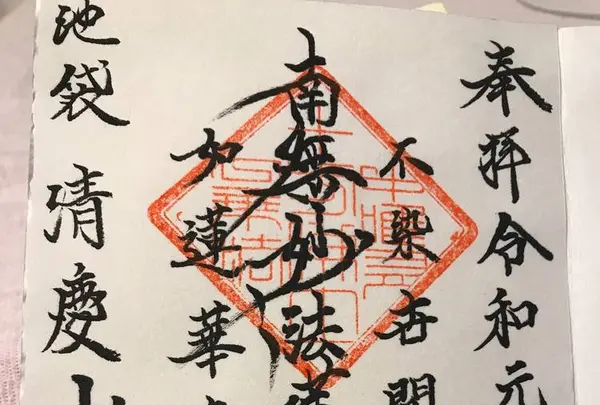 奉拝令和元
不染世間
南無妙法蓮
如蓮華
池袋 清慶山